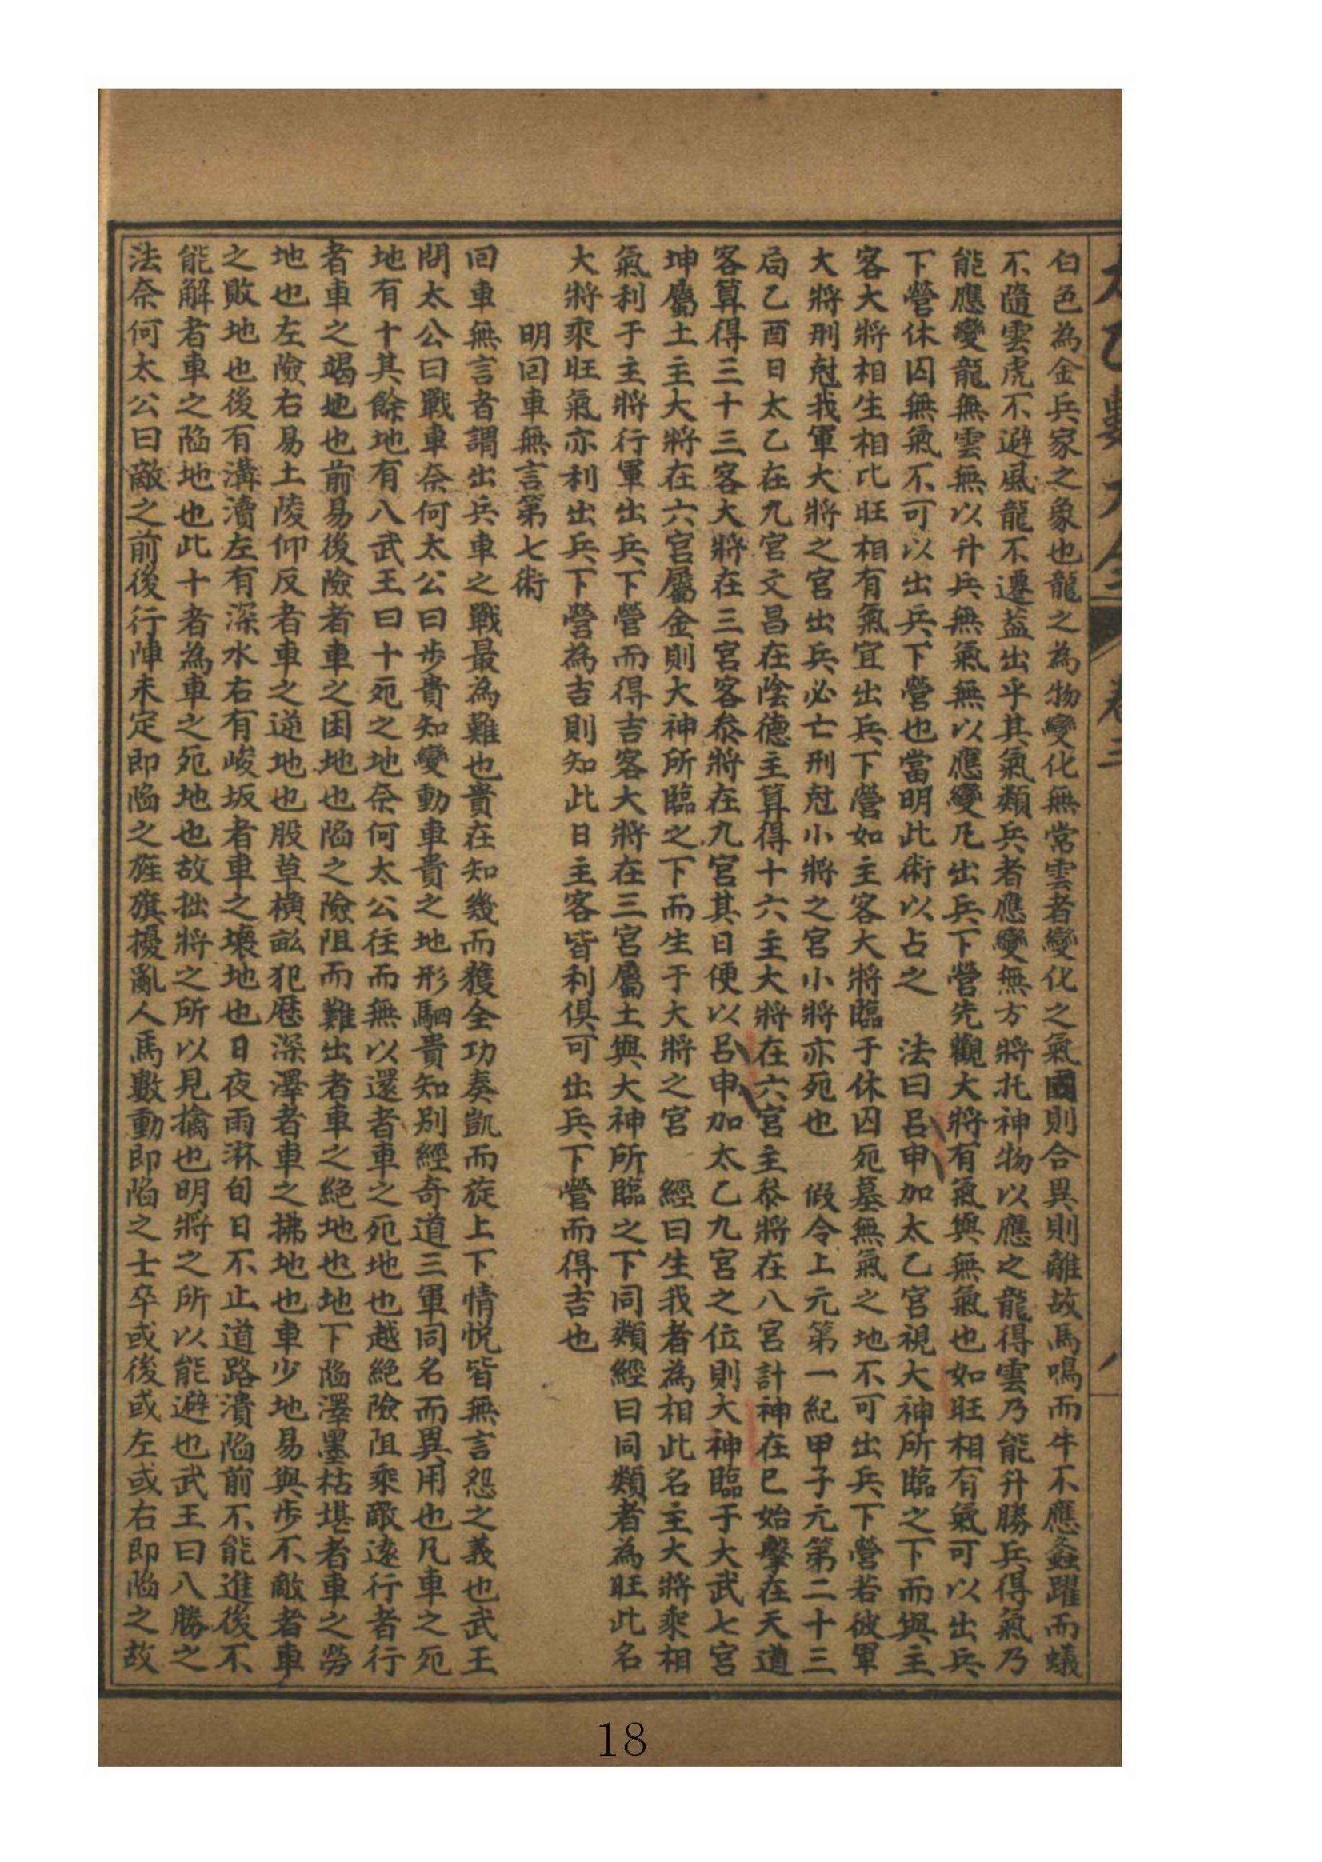 太乙數大全 卷三 八
白色為金兵家之象也龍之為物變化無常雲者變化之氣國則合異則離故馬鳴而牛不應螽躍而蟻
不隨雲虎不避風龍不遷益出乎其氣類兵者應變無方將托神物以應之龍得雲乃能升勝兵得氣乃
能應變龍無雲無以升兵無氣無以應變凡出兵下營先觀大將有氣與無氣也如旺相有氣可以出兵
下營休囚無氣不可以出兵下營也當明此術以占之 法曰呂申加太乙宮視大神所臨之下而與主
客大將相生相比旺相有氣宜出兵下營如主客大將臨于休囚死墓無氣之地不可出兵下營若彼軍
大將刑尅我軍大將之宮出兵必亡刑尅小將之宮小將亦死也 假令上元第一紀甲子元第二十三
局乙酉日太乙在九宮文昌在陰德主算得十六主大將在六宮主叅將在八宮計神在巳始擊在天道
客算得三十三客大將在三宮客叅將在九宮其日便以呂申加太乙九宮之位則大神臨于大武七宮
坤屬土主大將在六宮屬金則大神所臨之下而生于大將之宮 經曰生我者為相此名主大將乘相
氣利于主將行軍出兵下營而得吉客大將在三宮屬土與大神所臨之下同類經曰同類者為旺此名
大將乘旺氣亦利出兵下營為吉則知此日主客皆利俱可出兵下營而得吉也
明回車無言第七術
回車無言者謂出兵車之戰最為難也貴在知幾而獲全功奏凱而旋上下情悅皆無言怨之義也武王
問太公曰戰車奈何太公曰步貴知變動車貴之地形駟貴知別經奇道三軍同名而異用也凡車之死
地有十其餘地有八武王曰十死之地奈何太公往而無以還者車之死地也越絕險阻乘敵遠行者行
者車之竭地也前易後險者車之困地也陷之險阻而難出者車之絕地也地下陷澤墨枯堪者車之勞
地也左險右易土陵仰反者車之逆地也股草橫畝犯歷深澤者車之拂地也車少地易與步不敵者車
之敗地也後有溝瀆左有深水右有峻坂者車之壞地也日夜雨淋旬日不止道路潰陷前不能進後不
能解者車之陷地也此十者為車之死地也故拙將之所以見擒也明將之所以能避也武王曰八勝之
法奈何太公曰敵之前後行陣未定即陷之旌旗擾亂人馬數動即陷之士卒或後或左或右即陷之故
18